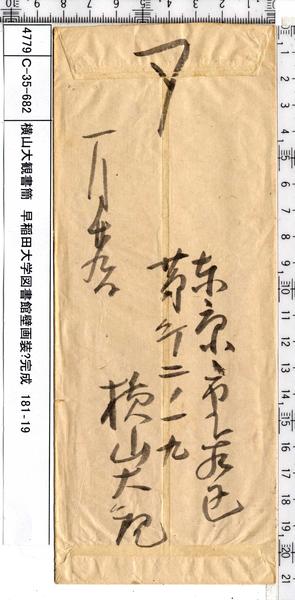 4779 C-35-682 横山大観書簡 早稲田大学図書館壁画装?完成 181-19
一月
東京市下谷区
茅町二ノ一九
横山大観